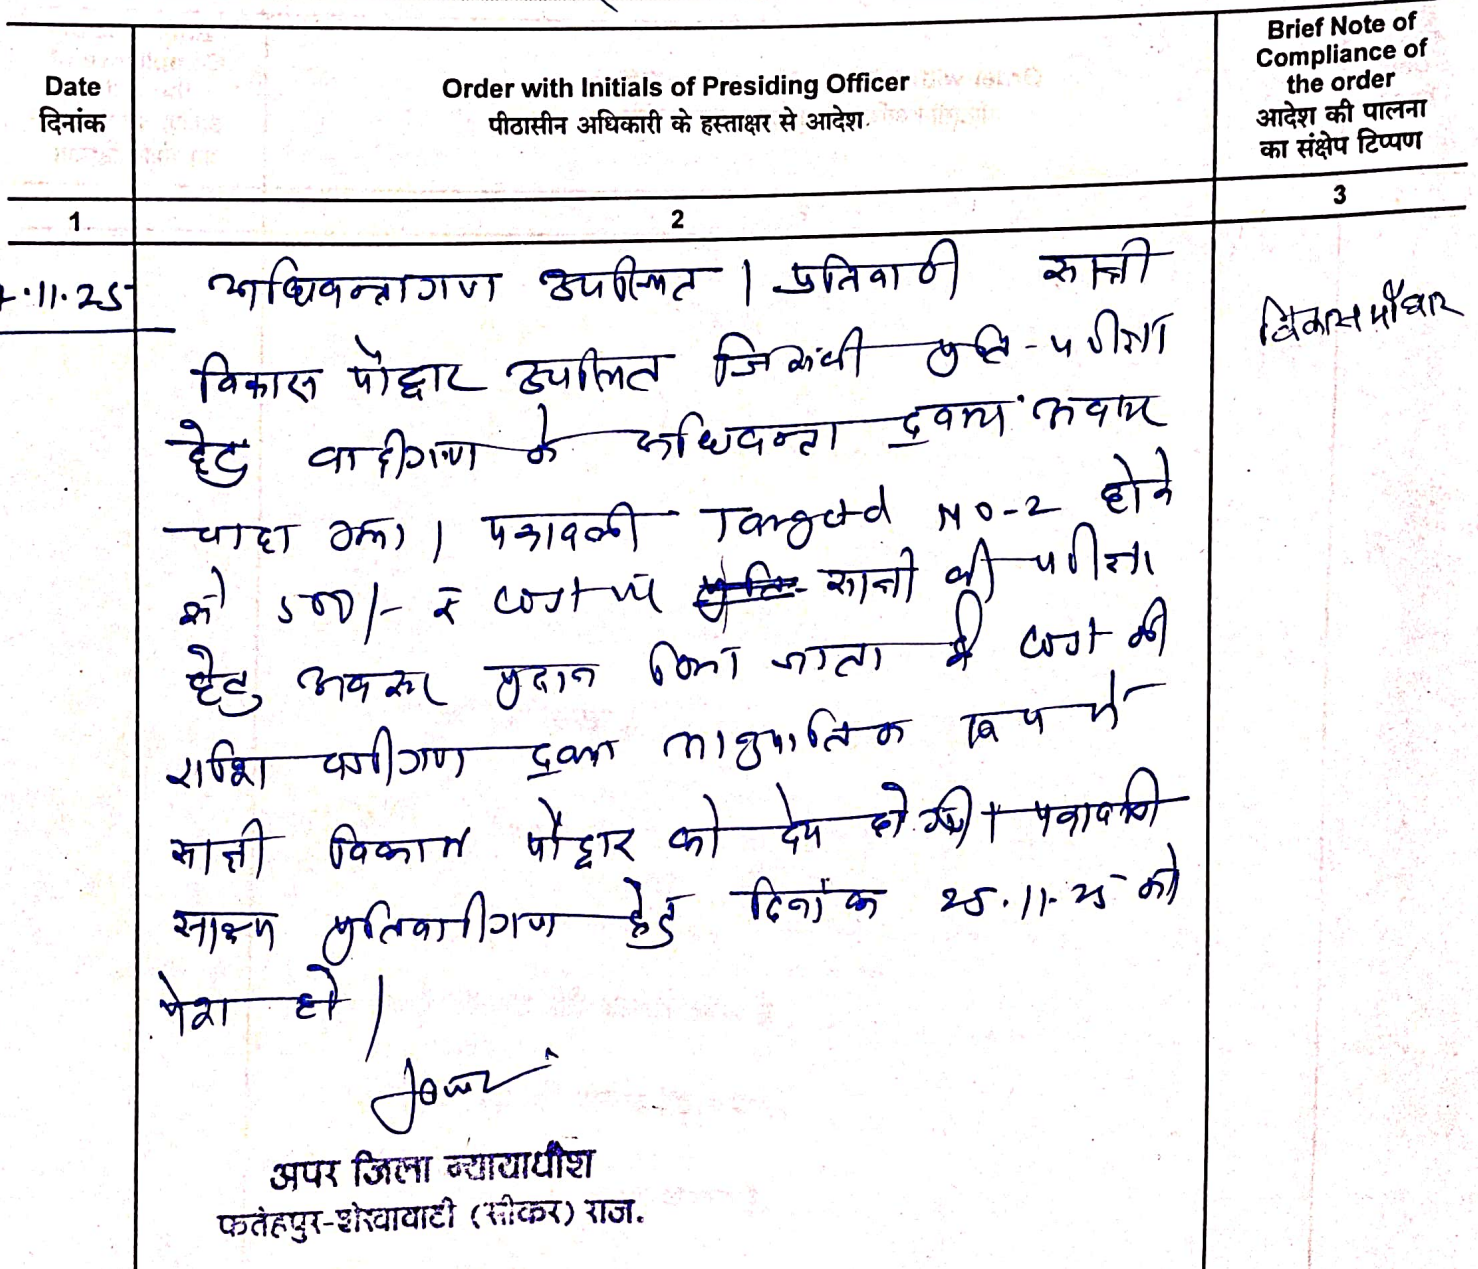 Date
दिनांक
Order with Initials of Presiding Officer
पीठासीन अधिकारी के हस्ताक्षर से आदेश.
Brief Note of
Compliance of
the order
आदेश की पालना
का संक्षेप टिप्पण
1
2
3
.11.25
अधिवक्तागण उपस्थित । प्रतिवादी साक्षी
विकास पौद्दार उपस्थित जिसकी प्रति-परीक्षा
हेतु वादीगण के अधिवक्ता द्वारा अवसर
चाहा गया । पत्रावली Targeted NO-2 होने
से 500/- रु cost पर प्रति- साक्षी की परीक्षा
हेतु अवसर प्रदान किया जाता है cost की
राशि वादीगण द्वारा आनुपातिक रूप से
साक्षी विकास पौद्दार को देय होगी । पत्रावली
साक्ष्य प्रतिवादीगण हेतु दिनांक 25.11.25 को
पेश हो ।
विकास पौद्दार
अपर जिला न्यायाधीश
फतेहपुर-शेखावाटी (सीकर) राज.